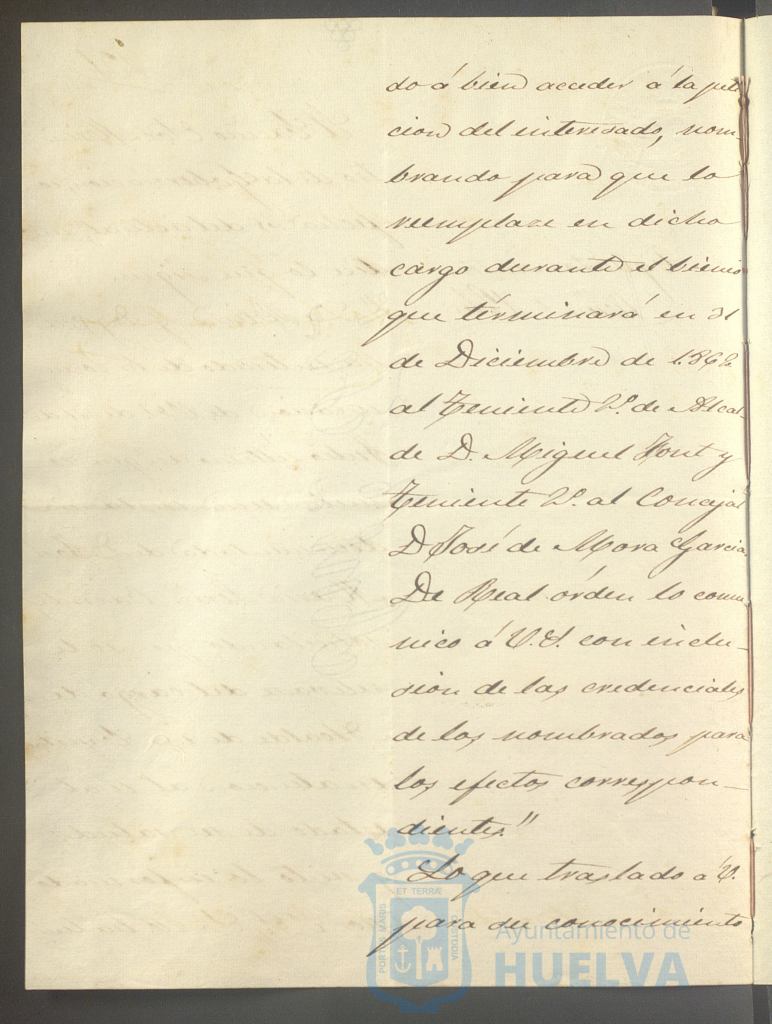 do á bien acceder á la peti
cion del interesado, nom-
brando para que lo
reemplaze en dicho
cargo durante el bienio
que términará en 31
de Diciembre de 1.862
al Teniente 2º. de Alcal-
de D. Miguel Font y
Teniente 2º. al Concejal
D José de Mora Garcia.
De Real órden lo comu-
nico á V.S. con inclu-
sion de las credenciales
de los nombrados para
los efectos correspon-
dientes."
Lo que traslado a V.
para su conocimiento
PORTUS MARIS ET TERRÆ CUSTODIA
Ayuntamiento de
HUELVA